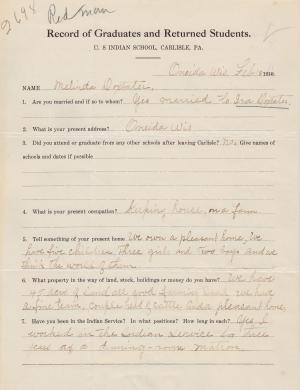 2698 Red man
Record of Graduates and Returned Students.
U. S INDIAN SCHOOL, CARLISLE, PA.
Oneida Wis Feb 1910.
NAME Melinda Doxtater
1. Are you married and if so to whom? Yes married to Ira Doxtater.
2. What is your present address? Oneida Wis
3. Did you attend or graduate from any other schools after leaving Carlisle? No. Give names of
schools and dates if possible
4. What is your present occupation? Keeping house, on a farm
5. Tell something of your present home We own a pleasant home, We
have five children. Three girls and two boys and we
think the world of them.
6. What property in the way of land, stock, buildings or money do you have? We have
45 acres of land all good farming land. we have
a fine team, couple head of cattle and a pleasant home.
7. Have you been in the Indian Service? In what positions? How long in each? Yes I
worked in the Indian Service for three
years as a dining-room matron